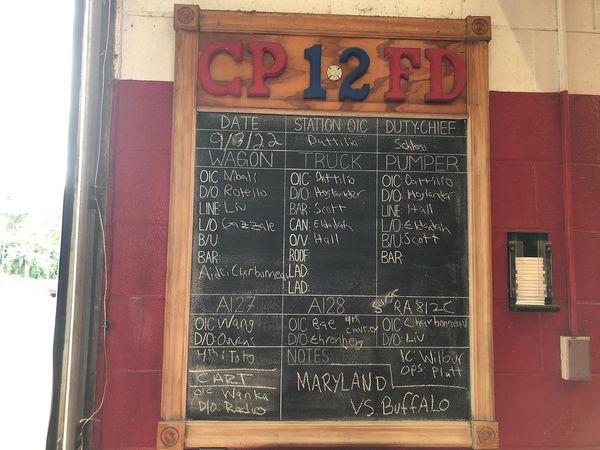 CP 12 FD
DATE STATION OIC DUTY CHIEF
9/3/22 Dattilio Schloss
WAGON TRUCK PUMPER
OIC: Mbali OIC: Dattilio OIC: Dattilio
D/O: Rotello D/O: Hoglander D/O: Hoglander
LINE: Liv BAR: Scott LINE: Hall
L/O: Gazzale CAN: Eldadah L/O: Eldadah
B/U: O/V: Hall B/U: Scott
BAR: ROOF: BAR:
Charbonneau LAD:
LAD:
A127 A128 RA812C
OIC: Wang OIC: Bae 4th OIC: Charbonneau
D/O: Owens D/O: Ehrenberg D/O: Liv
4th: Toto NOTES: IC: Wilbur
CART OPS: Platt
OIC: Wanka MARYLAND
D/O: Radio VS. BUFFALO